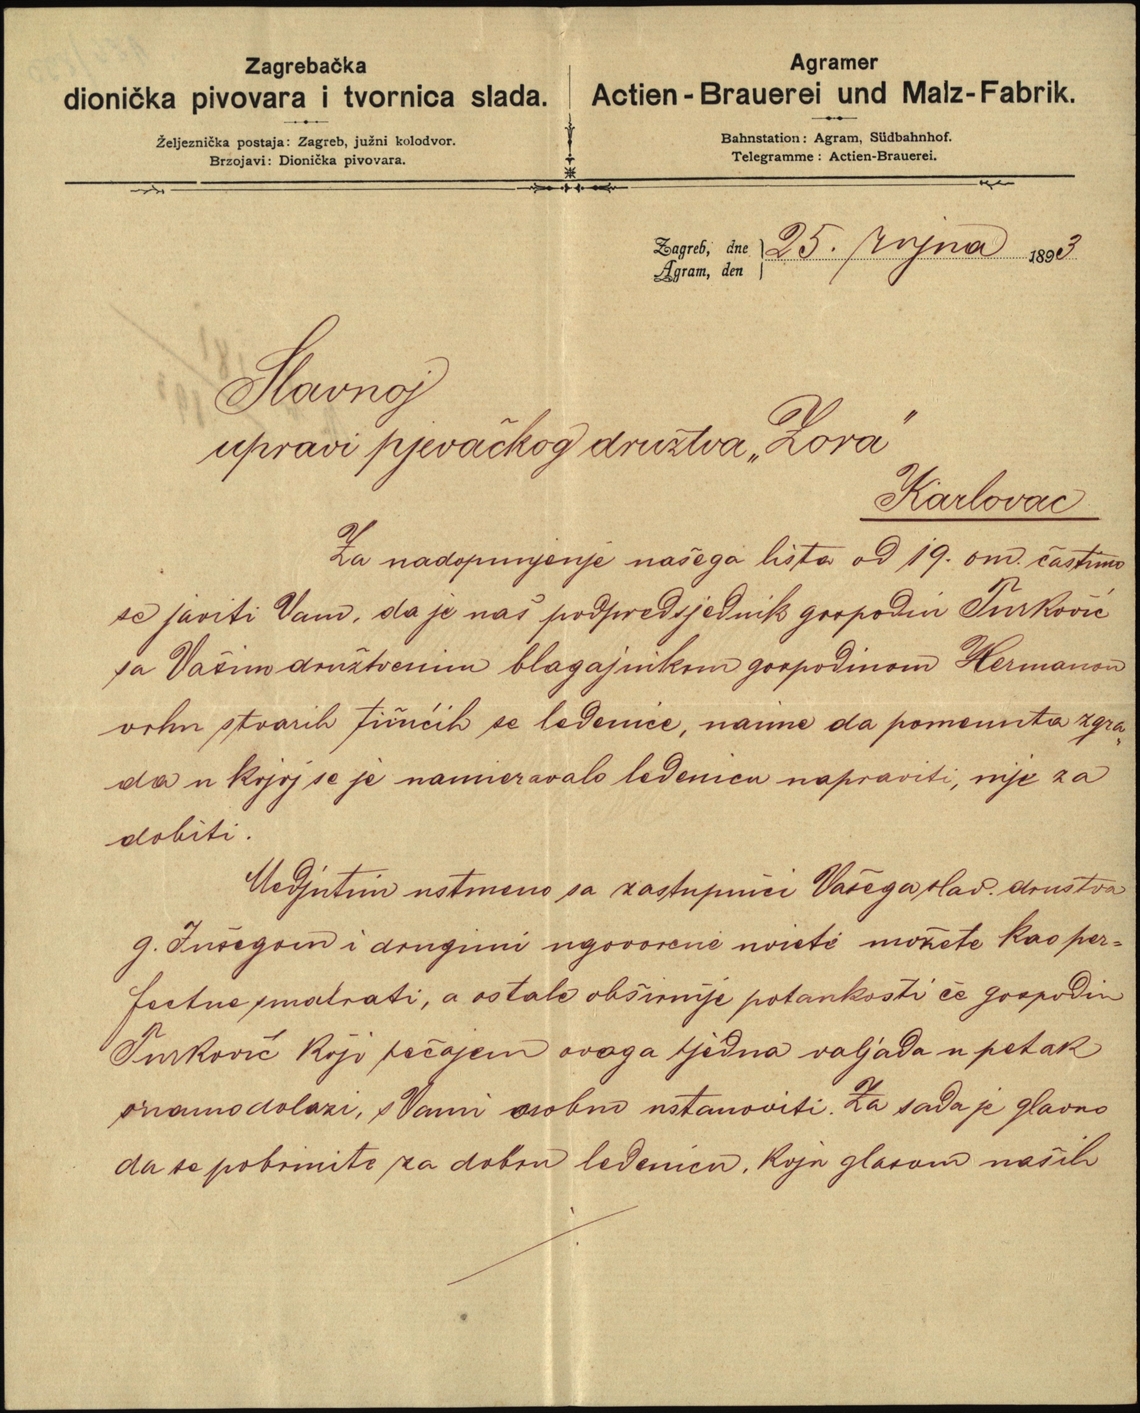 Zagrebačka
dionička pivovara i tvornica slada.
Željeznička postaja: Zagreb, južni kolodvor.
Brzojavi: Dionička pivovara.
Agramer
Actien-Brauerei und Malz-Fabrik.
Bahnstation: Agram, Südbahnhof.
Telegramme: Actien-Brauerei.
Zagreb, dne 25. rujna 1893
Agram, den
Slavnoj
upravi pjevačkog družtva „Zora“
Karlovac
Za nadopunjenje našega lista od 19. om. častimo
se javiti Vam, da je naš podpredsjednik gospodin Turković
sa Vašim družtvenim blagajnikom gospodinom Hermanom
vrhu stvarih tičućih se ledenice, naime da pomenuta zgra„
da u kojoj se je namieravalo ledenicu napraviti, nije za
dobiti.
Medjutim ustmeno sa zastupnici Vašega slav. družtva
g. i drugimi ugovorene uviete možete kao per=
fectne smatrati, a ostale obširnije potankosti će gospodin
Turković koji tečajem ovoga tjedna valjada u petak
onamo dolazi, s Vami osobno ustanoviti. Za sada je glavno
da se pobrinite za dobru ledenicu, koja glasom naših